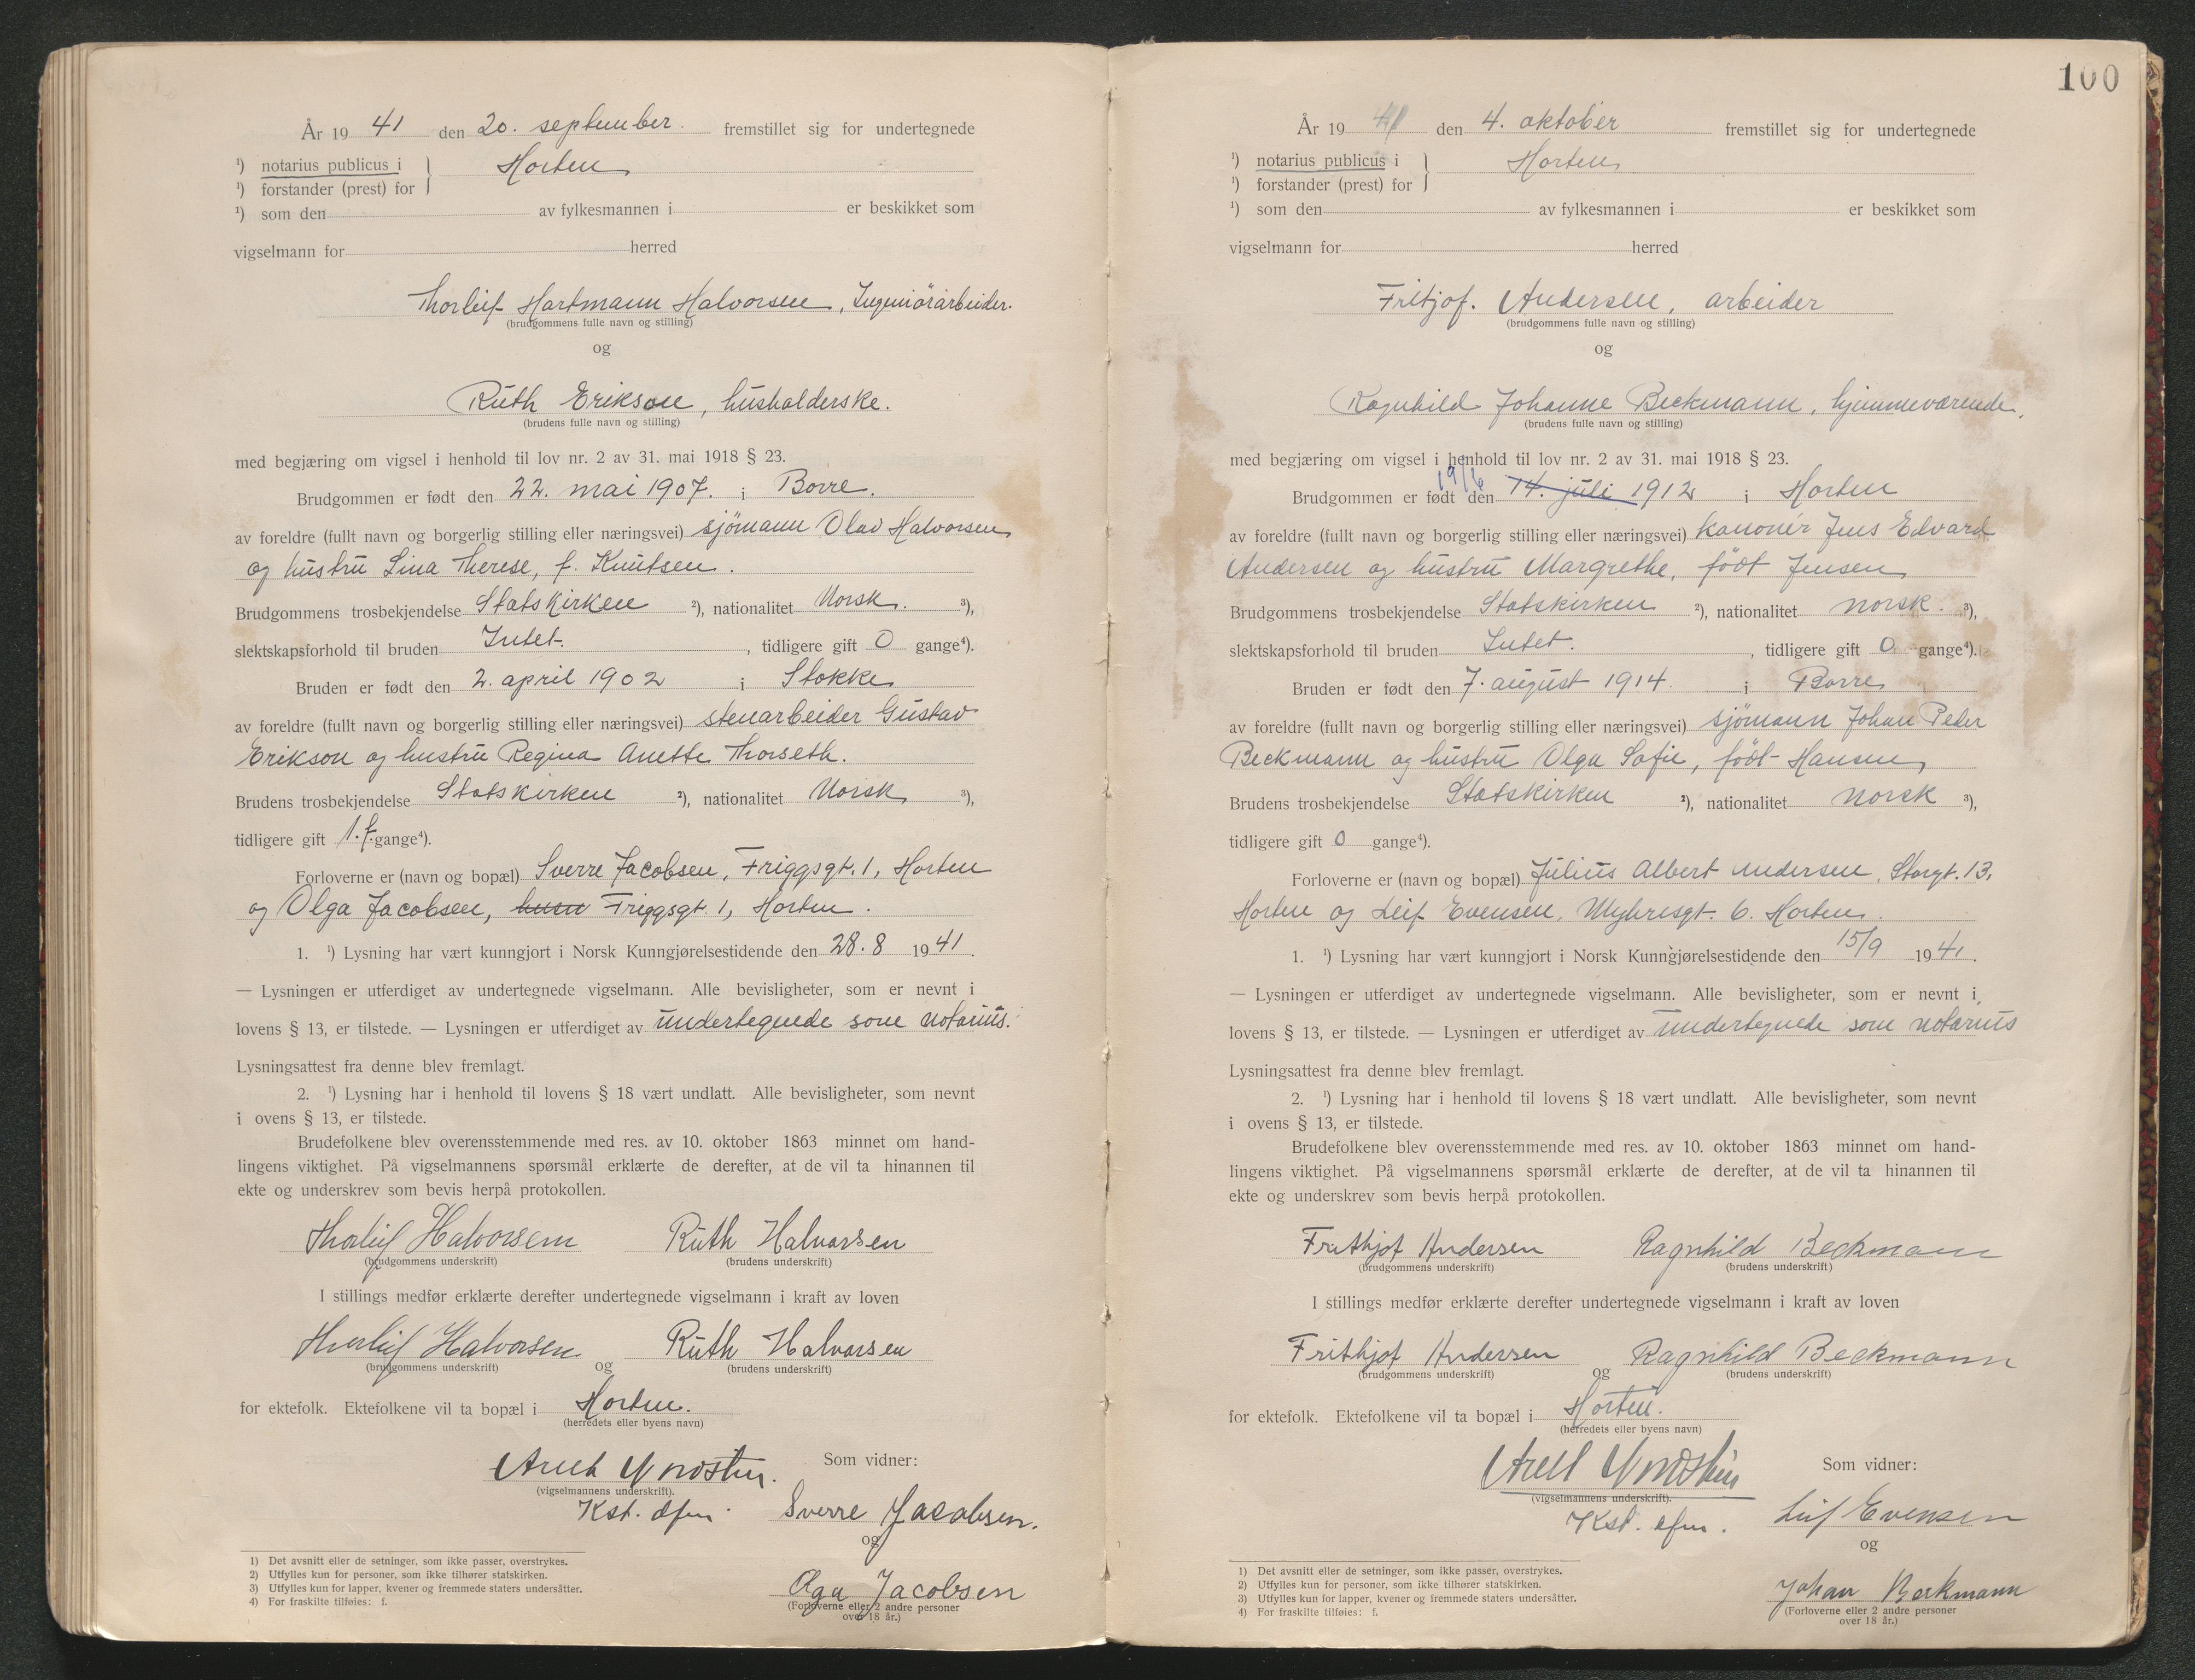 År 19 41 den 20. september. fremstillet sig for undertegnede
¹) notarius publicus i } Horten
¹) forstander (prest) for
¹) som den av fylkesmannen i er beskikket som
vigselmann for herred
Thorleif Hartmann Halvorsen, Ingeniörarbeider.
(brudgommens fulle navn og stilling)
og
Ruth Erikson, husholderske.
(brudens fulle navn og stilling)
med begjæring om vigsel i henhold til lov nr. 2 av 31. mai 1918 § 23.
Brudgommen er født den 22. mai 1907. i Borre.
av foreldre (fullt navn og borgerlig stilling eller næringsvei) sjömann Olav Halvorsen
og hustru Lina Therese, f. Knutsen.
Brudgommens trosbekjendelse Statskirken ²), nationalitet Norsk. ³),
slektskapsforhold til bruden Intet. , tidligere gift 0 gange⁴).
Bruden er født den 2. april 1902 i Stokke
av foreldre (fullt navn og borgerlig stilling eller næringsvei) stenarbeider Gustav
Erikson og hustru Regina Anette Thorseth.
Brudens trosbekjendelse Statskirken ²), nationalitet Norsk ³),
tidligere gift 1.f. gange⁴).
Forloverne er (navn og bopæl) Sverre Jacobsen, Friggsgt. 1, Horten
og Olga Jacobsen, Friggsgt. 1, Horten.
1. ¹) Lysning har vært kunngjort i Norsk Kunngjørelsestidende den 28.8 1941.
— Lysningen er utferdiget av undertegnede vigselmann. Alle bevisligheter, som er nevnt i
lovens § 13, er tilstede. — Lysningen er utferdiget av undertegnede som notarius.
Lysningsattest fra denne blev fremlagt.
2. ¹) Lysning har i henhold til lovens § 18 vært undlatt. Alle bevisligheter, som nevnt
i ovens § 13, er tilstede.
Brudefolkene blev overensstemmende med res. av 10. oktober 1863 minnet om hand-
lingens viktighet. På vigselmannens spørsmål erklærte de derefter, at de vil ta hinannen til
ekte og underskrev som bevis herpå protokollen.
Thorleif Halvorsen Ruth Halvorsen
(brudgommens underskrift) (brudens underskrift)
I stillings medfør erklærte derefter undertegnede vigselmann i kraft av loven
Thorleif Halvorsen og Ruth Halvorsen
(brudgommens underskrift) (brudens underskrift)
for ektefolk. Ektefolkene vil ta bopæl i Horten.
(herredets eller byens navn)
Som vidner:
(vigselmannens underskrift).
Kst. dfm. Sverre Jacobsen.
og
Olga Jacobsen
(Forloverne eller 2 andre personer
over 18 år.)
1) Det avsnitt eller de setninger, som ikke passer, overstrykes.
2) Utfylles kun for personer, som ikke tilhører statskirken.
3) Utfylles kun for lapper, kvener og fremmede staters undersåtter.
4) For fraskilte tilføies: f.
100
År 19 41 den 4. oktober fremstillet sig for undertegnede
¹) notarius publicus i } Horten
¹) forstander (prest) for
¹) som den av fylkesmannen i er beskikket som
vigselmann for herred
Fritjof. Andersen, arbeider
(brudgommens fulle navn og stilling)
og
Ragnhild Johanne Beckmann, hjemmeværende.
(brudens fulle navn og stilling)
med begjæring om vigsel i henhold til lov nr. 2 av 31. mai 1918 § 23.
19/6
Brudgommen er født den 14. juli 1912 i Horten
av foreldre (fullt navn og borgerlig stilling eller næringsvei) kanonér Jens Edvard
Andersen og hustru Margrethe, født Jensen
Brudgommens trosbekjendelse Statskirken ²), nationalitet norsk. ³),
slektskapsforhold til bruden Intet. , tidligere gift 0 gange⁴).
Bruden er født den 7. august 1914. i Borre
av foreldre (fullt navn og borgerlig stilling eller næringsvei) sjömann Johan Peder
Beckmann og hustru Olga Sofie, født Hansen
Brudens trosbekjendelse Statskirken ²), nationalitet norsk ³),
tidligere gift 0 gange⁴).
Forloverne er (navn og bopæl) Julius Albert Andersen, Storgt. 13,
Horten og Leif Evensen, Myhresgt. 6. Horten.
1. ¹) Lysning har vært kunngjort i Norsk Kunngjørelsestidende den 15/9 1941.
— Lysningen er utferdiget av undertegnede vigselmann. Alle bevisligheter, som er nevnt i
lovens § 13, er tilstede. — Lysningen er utferdiget av undertegnede som notarius
Lysningsattest fra denne blev fremlagt.
2. ¹) Lysning har i henhold til lovens § 18 vært undlatt. Alle bevisligheter, som nevnt
i ovens § 13, er tilstede.
Brudefolkene blev overensstemmende med res. av 10. oktober 1863 minnet om hand-
lingens viktighet. På vigselmannens spørsmål erklærte de derefter, at de vil ta hinannen til
ekte og underskrev som bevis herpå protokollen.
Frithjof Andersen Ragnhild Beckmann
(brudgommens underskrift) (brudens underskrift)
I stillings medfør erklærte derefter undertegnede vigselmann i kraft av loven
Frithjof Andersen og Ragnhild Beckmann
(brudgommens underskrift) (brudens underskrift)
for ektefolk. Ektefolkene vil ta bopæl i Horten.
(herredets eller byens navn)
Som vidner:
(vigselmannens underskrift).
Kst. dfm. Leif Evensen
og
Johan Beckmann
(Forloverne eller 2 andre personer
over 18 år.)
1) Det avsnitt eller de setninger, som ikke passer, overstrykes.
2) Utfylles kun for personer, som ikke tilhører statskirken.
3) Utfylles kun for lapper, kvener og fremmede staters undersåtter.
4) For fraskilte tilføies: f.